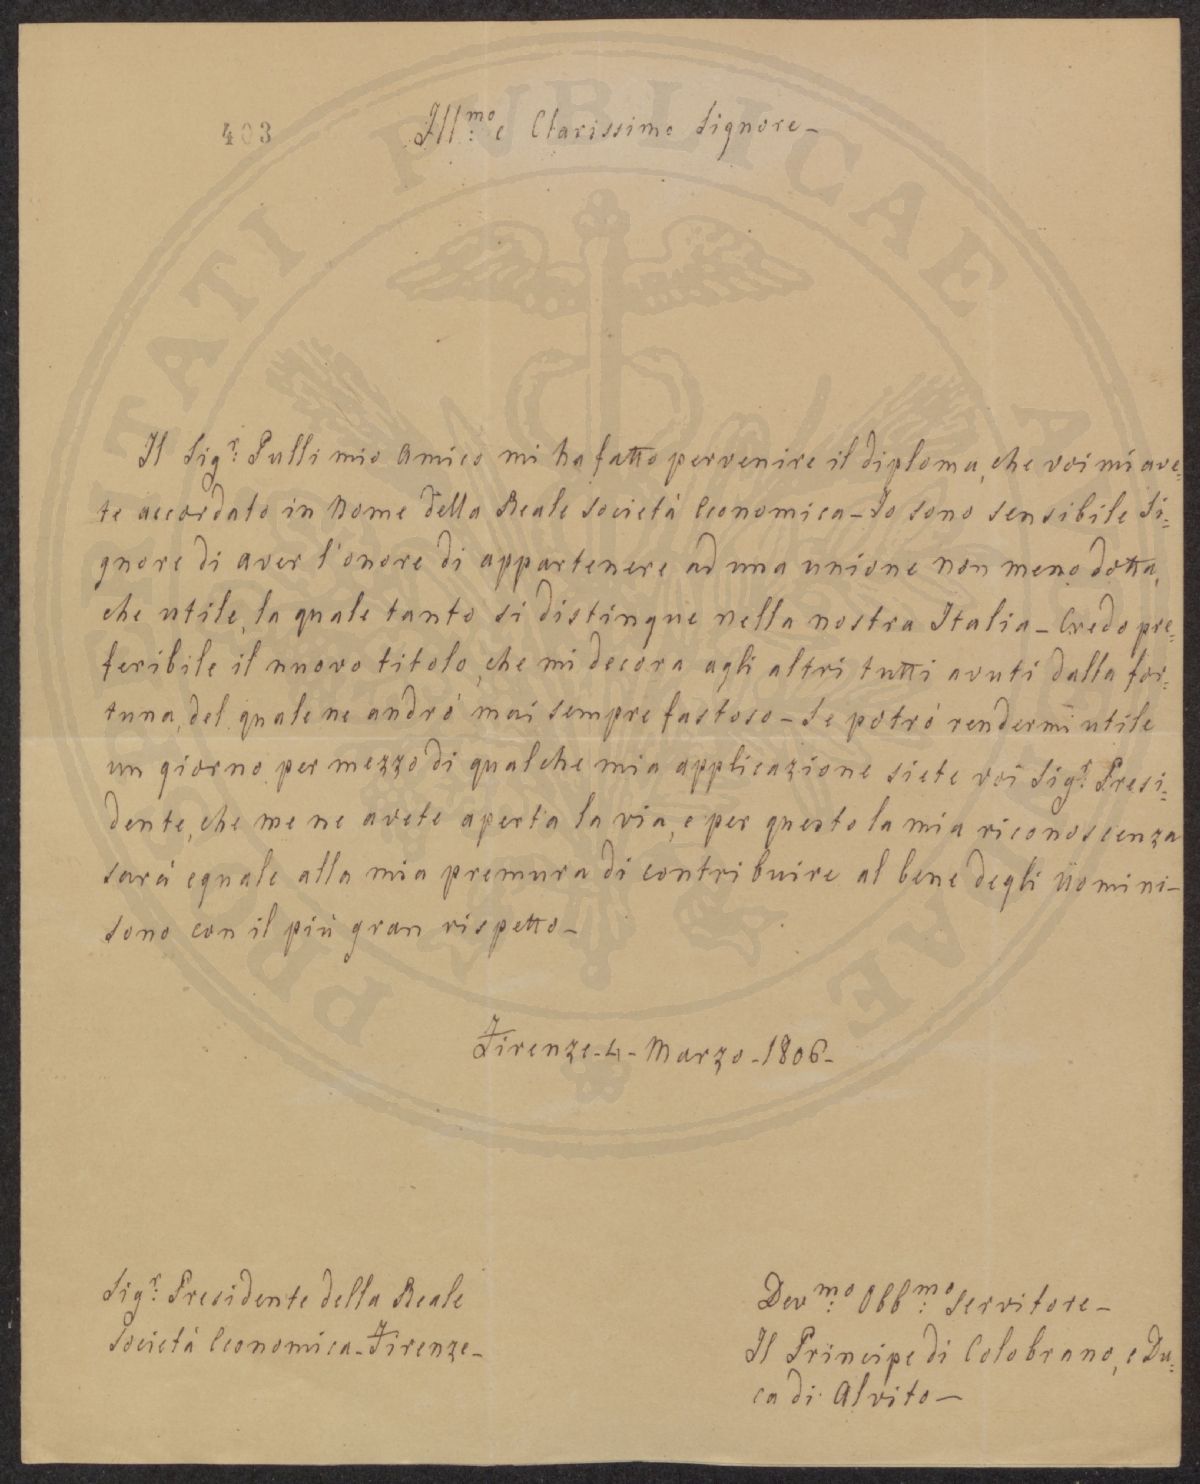 403
Ill.mo e Clarissimo Signore-
Il Sig.r Pulli mio Amico mi ha fatto pervenire il diploma, che voi mi ave=
te accordato in Nome della Reale Società Economica-Io sono sensibile Si=
gnore di aver l'onore di appartenere ad una unione non meno dotta,
che utile, la quale tanto si distingue nella nostra Italia-Credo pre=
feribile il nuovo titolo, che mi decora agli altri tutti avuti dalla for=
tuna, del quale ne andrò mai sempre fastoso-Se potrò rendermi utile
un giorno per mezzo di qualche mia applicazione siete voi Sig.r Presi=
dente, che me ne avete aperta la via, e per questo la mia riconoscenza
sarà eguale alla mia premura di contribuire al bene degli Uomini-
Sono con il più gran rispetto-
Firenze-4-Marzo-1806-
Sig.r Presidente della Reale
Società Economica-Firenze-
Dev.mo Obb.mo Servitore-
Il Principe di Colobrano, e Du=
ca di Alvito-
PROSPERITATI PUBLICAE AUGENDAE